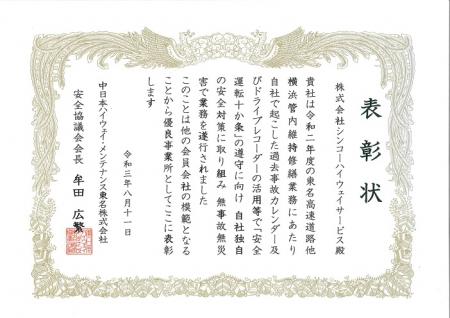 表彰状
株式会社シンコーハイウェイサービス殿
貴社は令和二年度の東名高速道路他
横浜管内維持修繕業務にあたり
自社で起こした過去事故カレンダー及
びドライブレコーダーの活用等で「安全
運転十か条」の遵守に向け 自社独自
の安全対策に取り組み 無事故無災
害で業務を遂行されました
このことは他の会員会社の模範となる
ことから優良事業所としてここに表彰
します
令和三年八月十一日
中日本ハイウェイ・メンテナンス東名株式会社
安全協議会会長 牟田 広繁